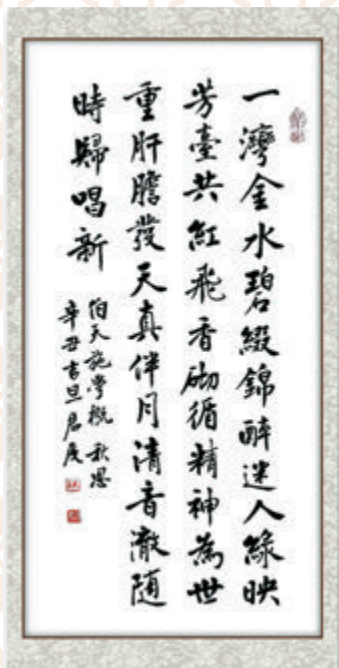 一灣金水碧綴錦醉迷人綠映
芳臺共紅飛香砌循精神為世
重肝膽發天真伴月清音澈隨
時歸唱新
伯天施學概
辛丑吉旦